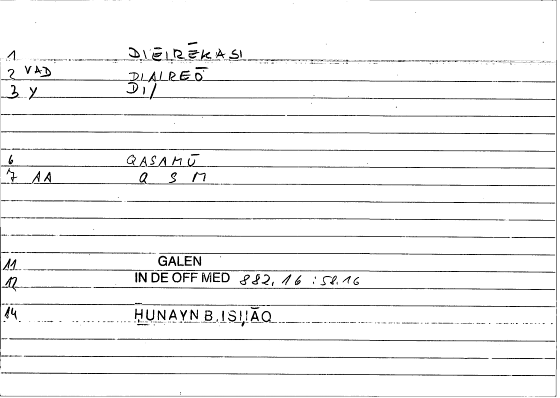 1 DIEIRĒKASI
2 VAD DIAIREŌ
3 Y DI/
6 QASAMŪ
7 AA Q S M
11 GALEN
12 IN DE OFF MED 882,16 : 58.16
14 ḤUNAYN B.ISḤĀQ